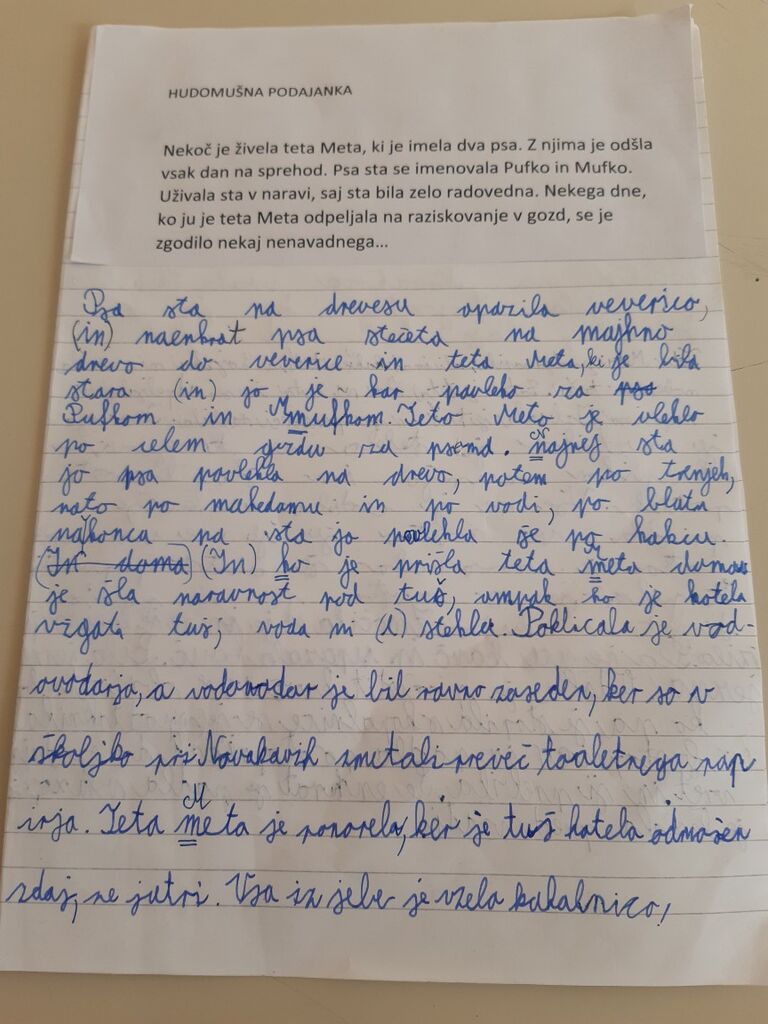 HUDOMUŠNA PODAJANKA
Nekoč je živela teta Meta, ki je imela dva psa. Z njima je odšla
vsak dan na sprehod. Psa sta se imenovala Pufko in Mufko.
Uživala sta v naravi, saj sta bila zelo radovedna. Nekega dne,
ko ju je teta Meta odpeljala na raziskovanje v gozd, se je
zgodilo nekaj nenavadnega...
Psa sta na drevesu opazila veverico,
(in) naenkrat psa stečeta na majhno
drevo do veverice in teta Meta, ki je bila
stara (in) jo je kar povleko za
Pufkom in Mufkom. Teto Meto je vleklo
po celem gozdu za psema. Najnej sta
jo psa povlekla na drevo, potem po trnjeh,
nato po makedamu in po vodi, po blatu
najkonca pa sta jo povlekla še po kakcu.
(In doma) (In) ko je prišla teta Meta domov
je šla naravnost pod tuš, ampak ko je hotela
vžgati tuš, voda ni (d) stekla. Poklicala je vod-
ovodarja, a vodovodar je bil ravno zaseden, ker so v
školjko pri Novakovih zmetali preveč toaletnega pap
irja. Teta Meta je ponorela, ker je tuš hotela odmašen
zdaj, ne jutri. Vsa iz jebe je vzela kuhalnico,